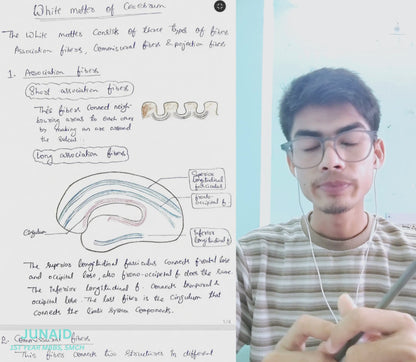 White matter of Cerebrum
The White matter consists of three types of fibers
Association fibers, Commisural fibers & projection fibers
1. Association fibers
Short association fibers
This fibers connect neigh-
bouring areas to each other
by making an arc around
the sulcus
Long association fibers
Superior
longitudinal
fasciculus
fronto-
occipital f.
Cingulum
Inferior
longitudinal f.
The superior longitudinal fasciculus connects frontal lobe
and occipital lobe, also fronto-occipital f. does the same
The Inferior longitudinal f. connects temporal &
occipital lobe. The last fibre is the Cingulum that
connects the limbic system components.
JUNAID
1ST YEAR MBBS, SMCH
2. Commisural fibers
This fibers connects two structures in different